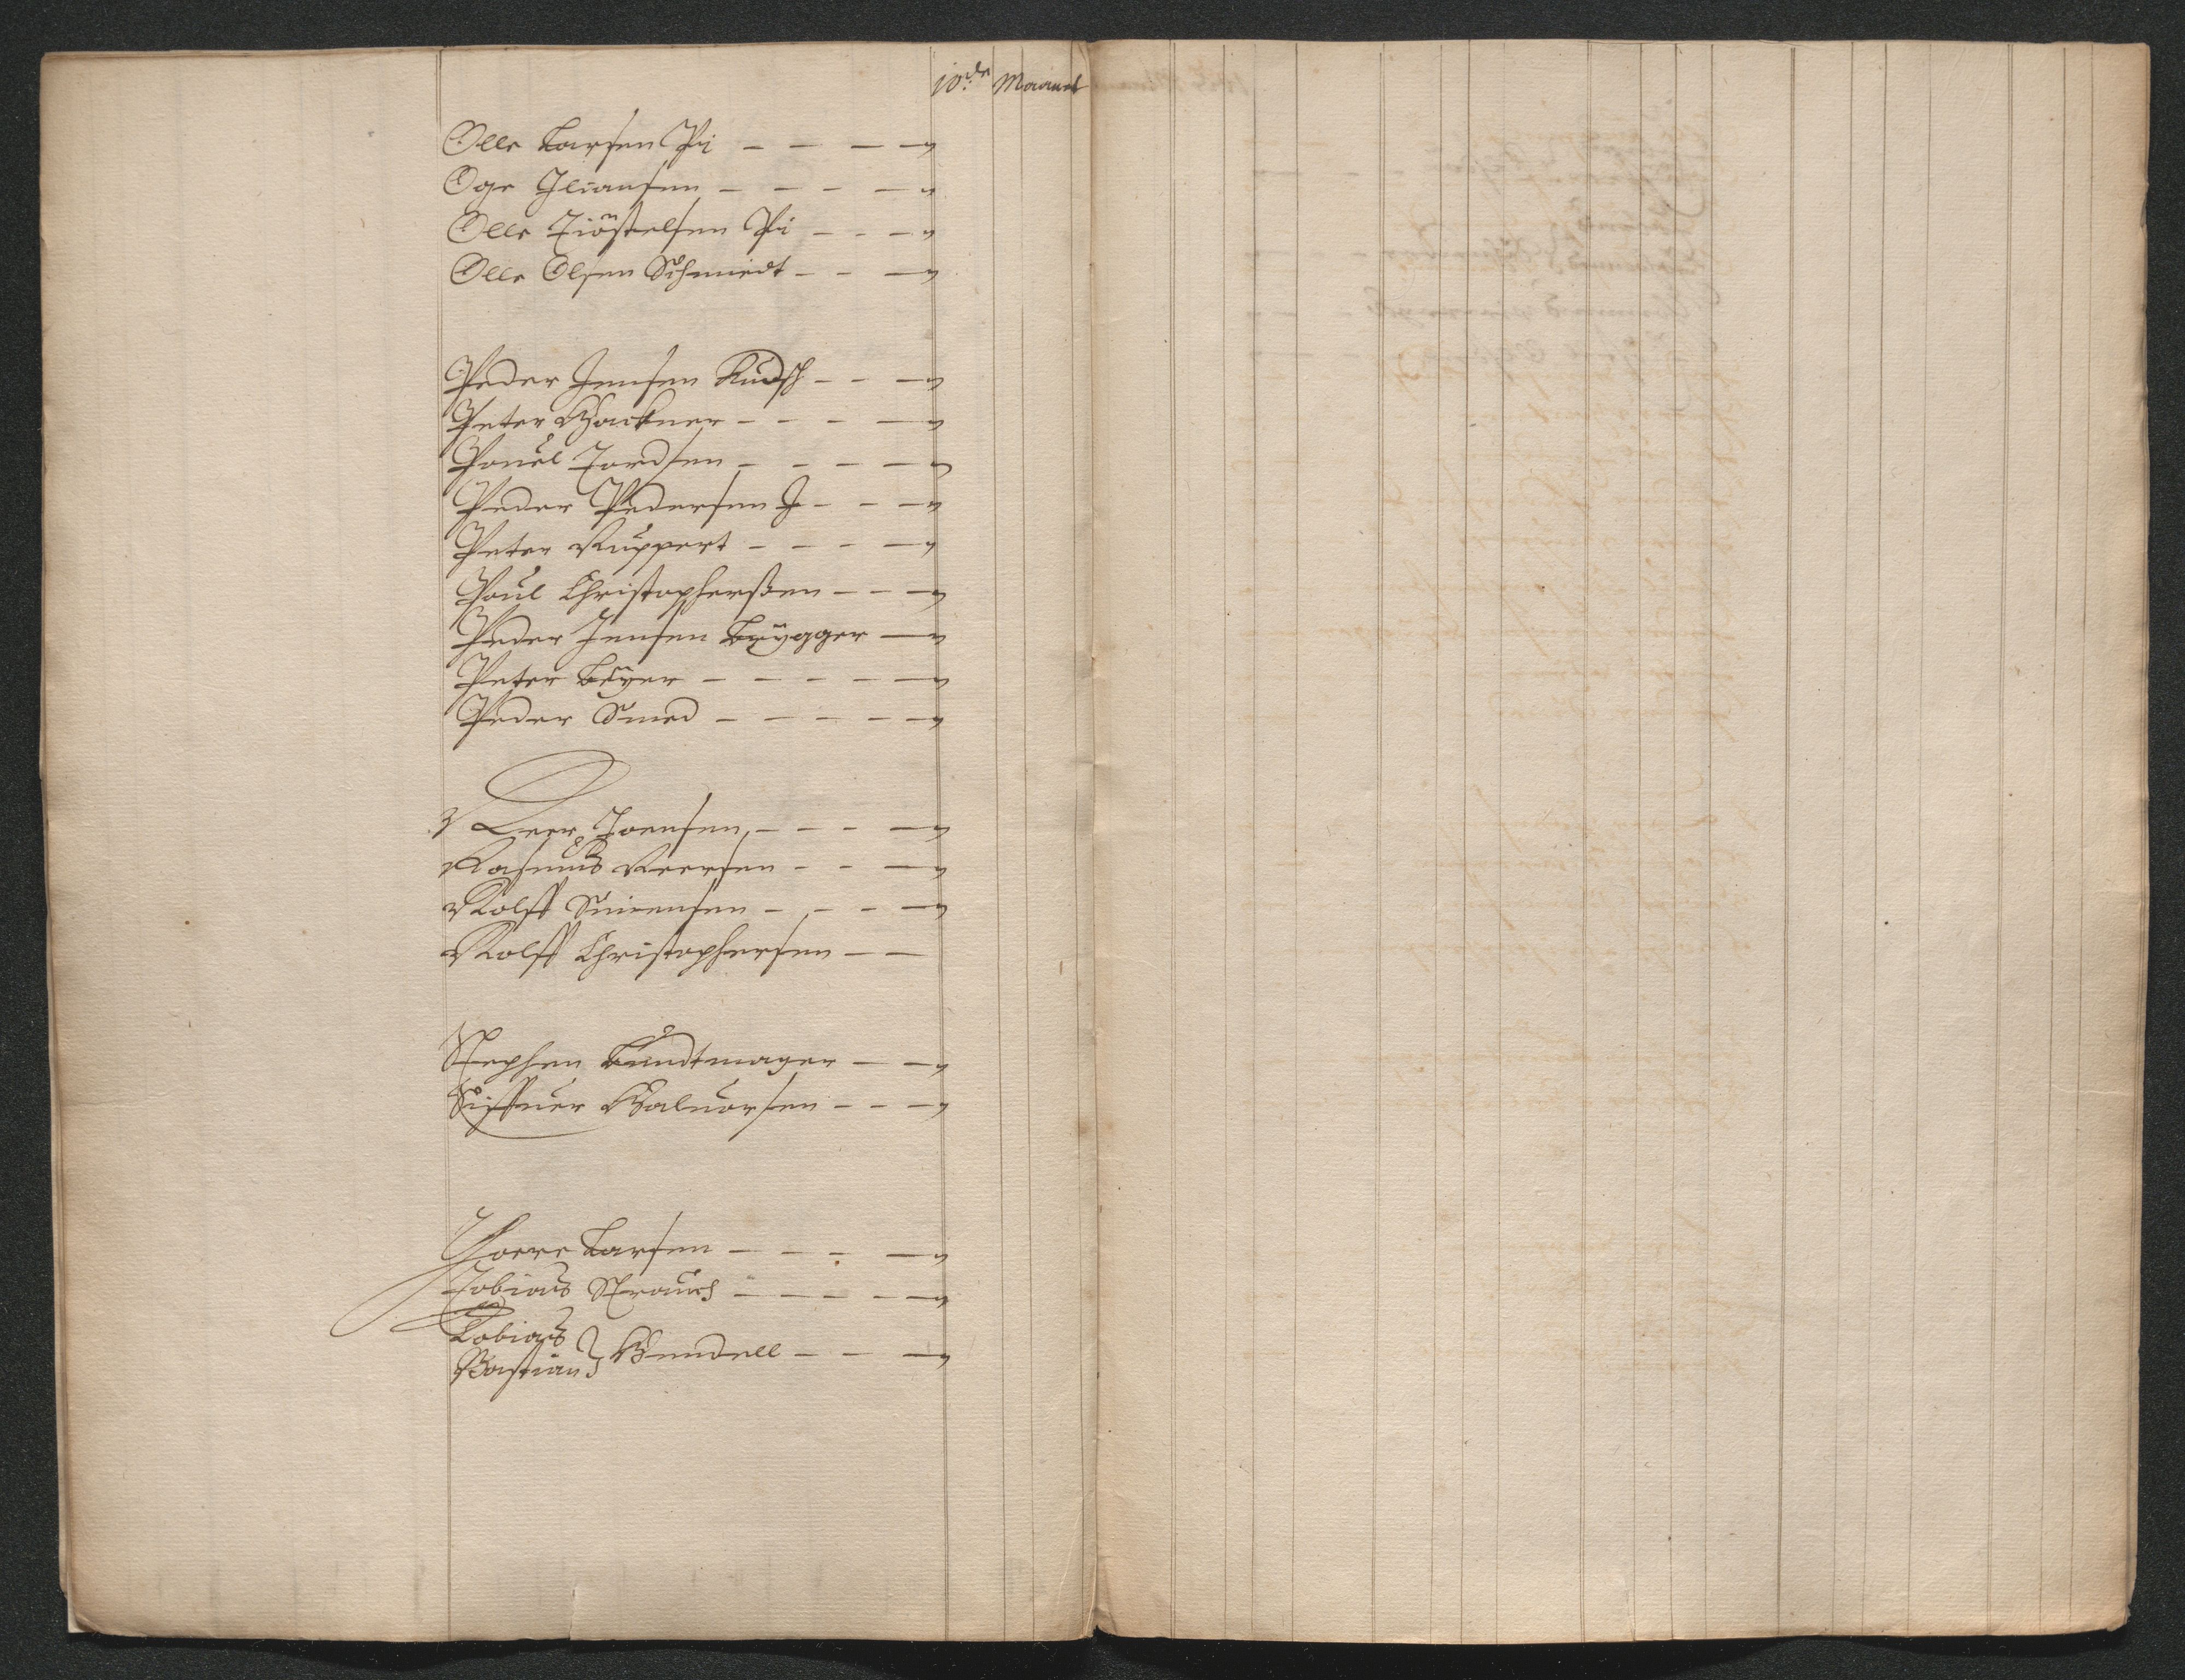 10de Maanet
Olle Larsen Pri
Oge Jliansen
Olle Kiöstelsen Pri
Olle Olsen Schmiedt
Peder Jensen Kudsk
Peter Wackner
Pouel Tordsen
Peder Pedersen J
Peter Ruppert
Poul Christopherssen
Peder Jensen Brÿgger
Peter Beÿer
Peder Smed
Reer Joensen
Rasmus Reersen
Rolff Suiensen
Rolff Christophersen
Stephen Bundtmayer
Siffuer Haluorsen
Thore Larsen
Tobias Strauch
Tobias
Bastian } Wendell